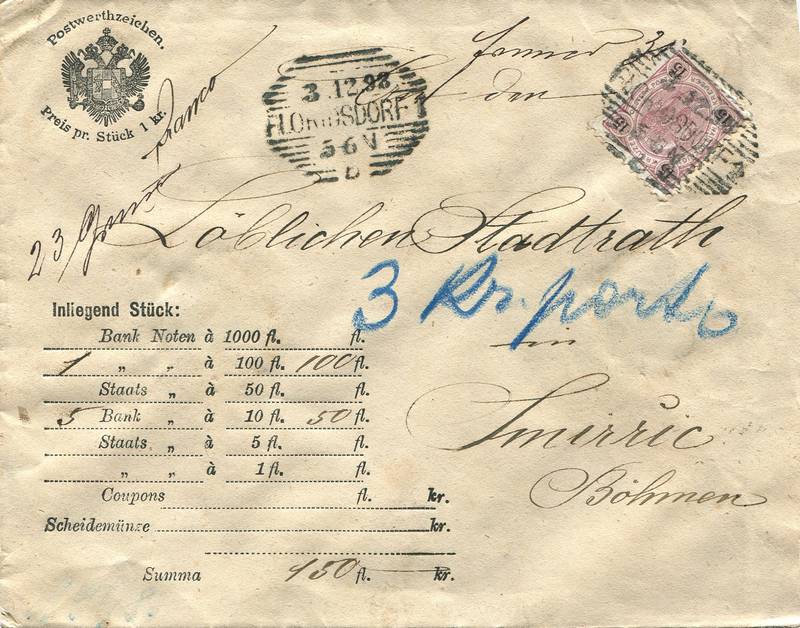 Postwerthzeichen.
Preis pr. Stück 1 kr.
franco
3 .12.93
FLORIDSDORF 1
5-6 N
b
den
15
23
Löblichen Stadtrath
3 Kr. porto
in
Smirric
Böhmen
Inliegend Stück:
Bank Noten à 1000 fl. fl.
1 „ „ à 100 fl. 100 fl.
Staats „ à 50 fl. fl.
5 Bank „ à 10 fl. 50 fl.
Staats „ à 5 fl. fl.
„ „ à 1 fl. fl.
Coupons fl. kr.
Scheidemünze kr.
Summa 150 fl. kr.